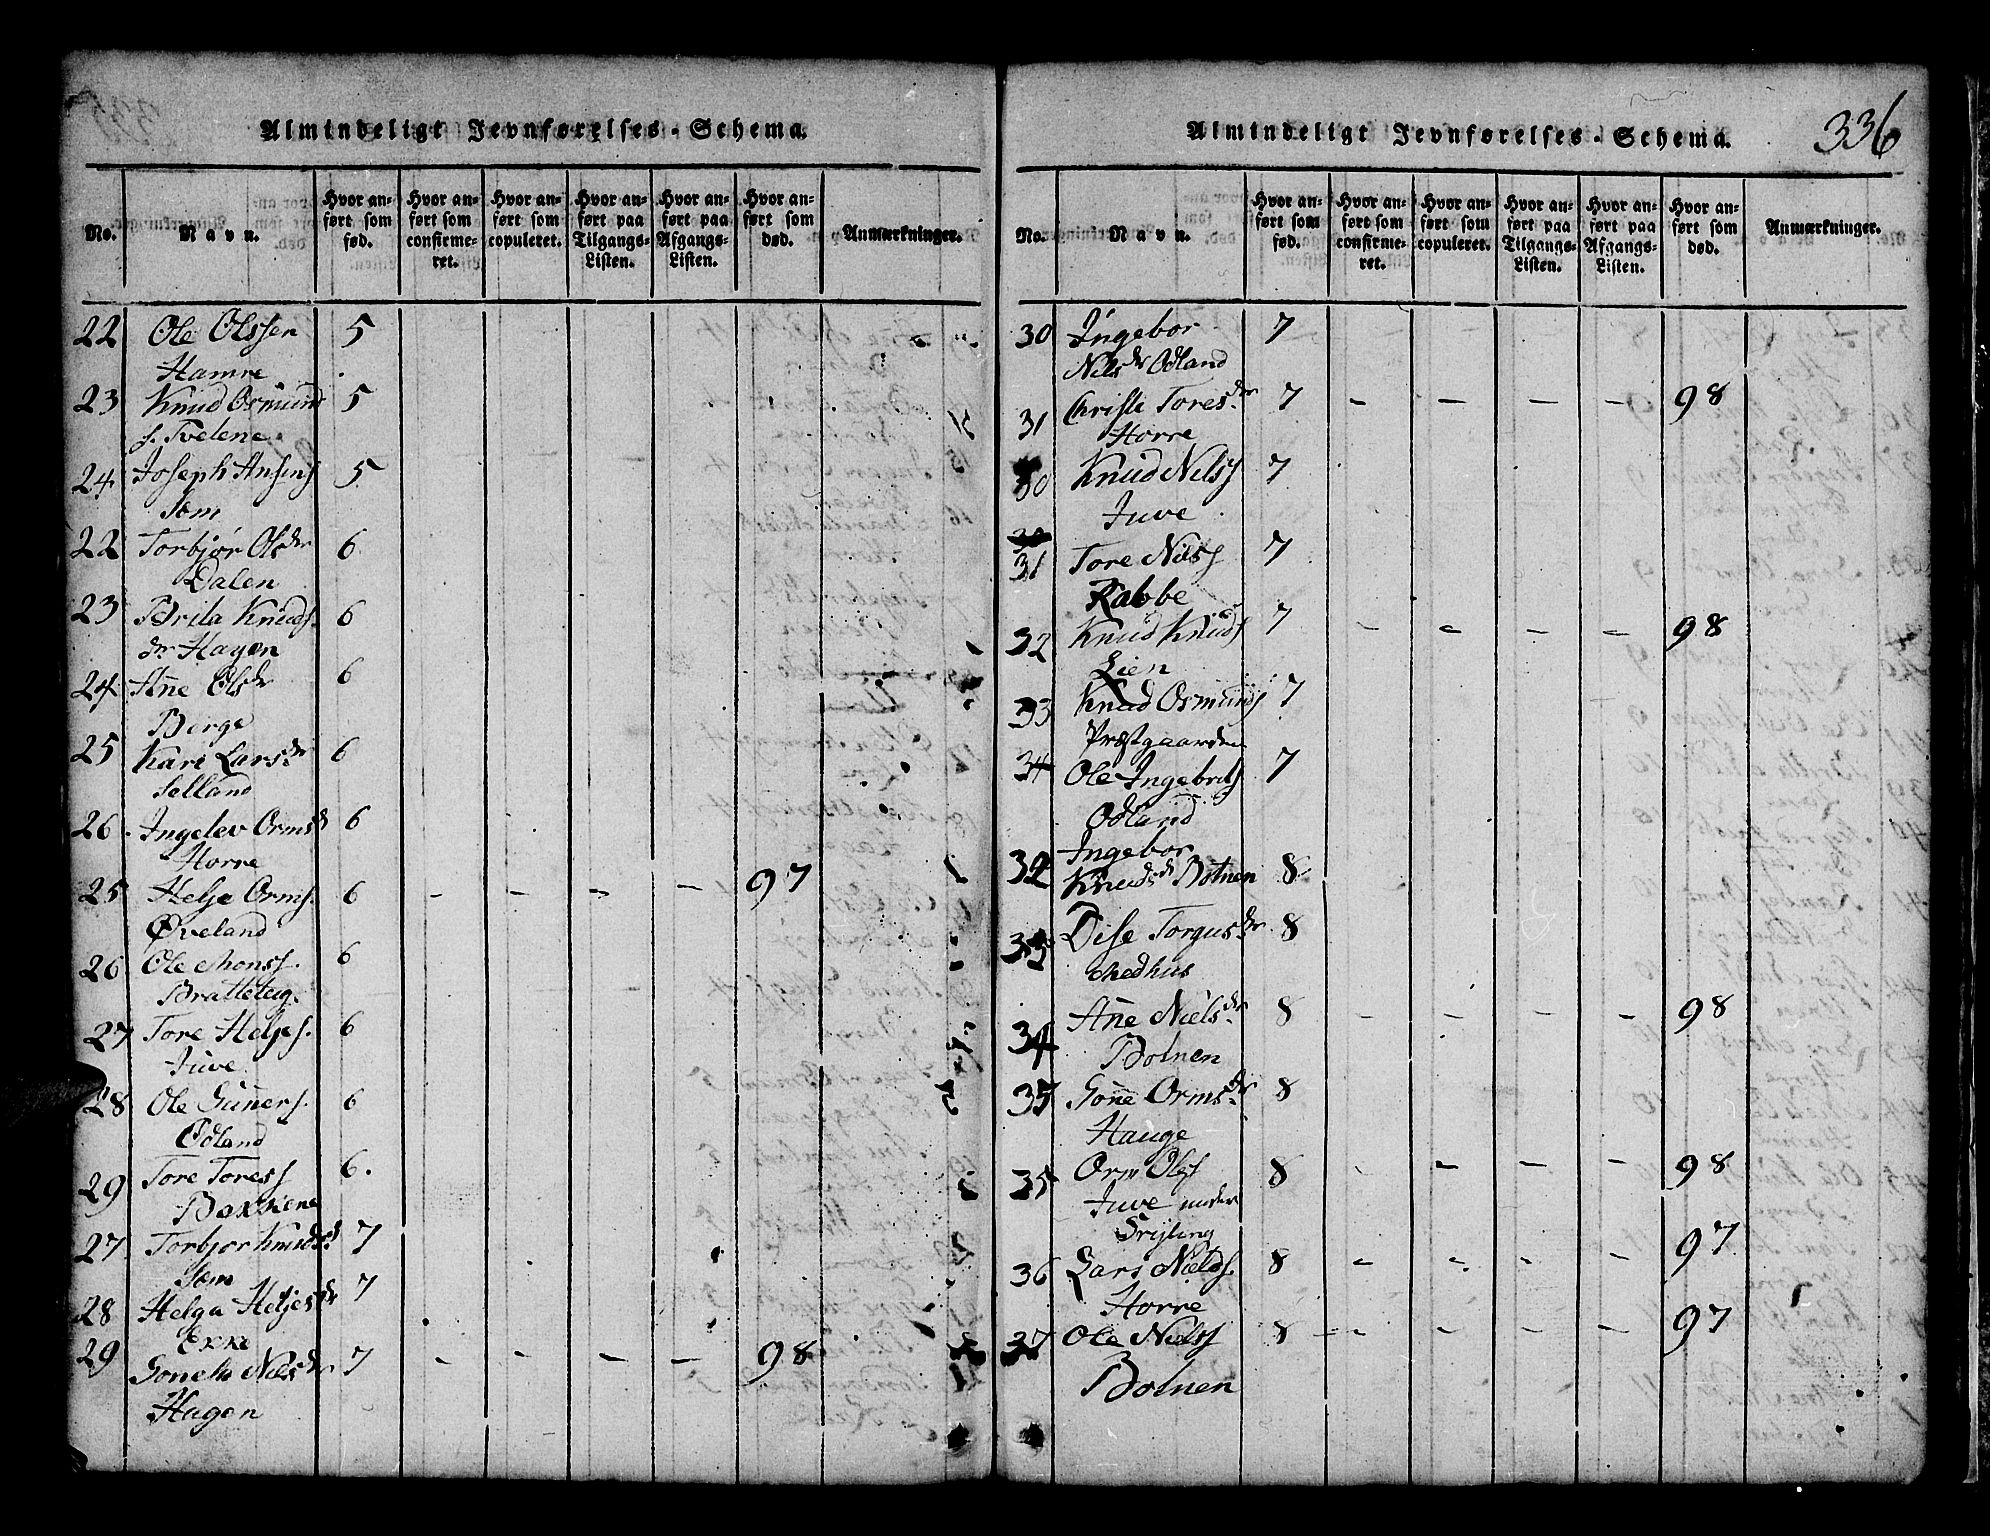 Almindeligt Jevnførelses-Schema.
No. Navn. Hvor anført som fød. Hvor anført som confirmeret. Hvor anført som copuleret. Hvor anført paa Tilgangs-Listen. Hvor anført paa Afgangs-Listen. Hvor anført som død. Anmærkninger.
22 Ole Olssen 5
Hamre
23 Knud Osmund 5
s. Tvelene
24 Joseph Ansens 5
Søm
22 Torbjør Olsdr 6
Dalen
23 Brita Knuds. 6
dr Hagen
24 Ane Olsdr 6
Berge
25 Kari Larsdr 6
Selland
26. Ingelev Ormsd 6
Horre
25 Helje Orms. 6 - - - - 97
Øveland
26 Ole Monss. 6
Bratteteig.
27 Tore Heljes. 6
Juve
28 Ole Guners. 6
Odland
29 Tore Toress 6.
Bakkene
27 Torbjor Knudsd 7
Søm
28 Helga Heljesdr 7
Ekke
29 Nilsdr 7 - - - - 98
Hagen
Almindeligt Jevnførelses-Schema.
336
No. Navn. Hvor anført som fød. Hvor anført som confirmeret. Hvor anført som copuleret. Hvor anført paa Tilgangs-Listen. Hvor anført paa Afgangs-Listen. Hvor anført som død. Anmærkninger.
30 Ingebor 7
Nilsdr Odland
31 Christi Toresdr 7 - - - - 98
Horre
30 Knud Nilss 7
Juve
31 Tore Nilss 7
Rabbe
32 Knud Knuds 7 - - - - 98
Lien
33 Knud Osmunds 7
Præstgaarden
34 Ole Ingebrits 7
Odland
32 Ingebor
Knudsd Botnen 8
33 Dise Torgusdr 8
Medhus
34 Ane Nielsdr 8 - - - - 98
Botnen
35 Gone Ormsdr 8
Hauge
35 Orm Oles 8 - - - - 98
Juve under
36 Lars Niels. 8 - - - - 97
Horre
37 Ole Nielss 8 - - - - 97
Botnen